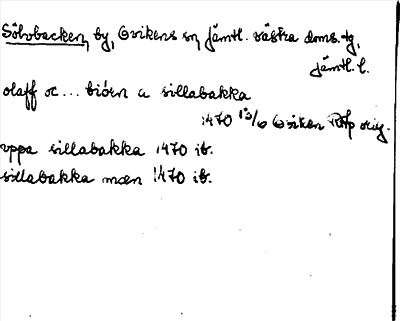 Sölvbacken, by, Ovikens sn, Jämtl. västra doms.tg,
Jämtl. l.
olaff oc ... biörn a sillabakka
1470 13/6 Oviken RAp orig.
vppa sillabakka 1470 ib.
sillabakka mæn 1470 ib.